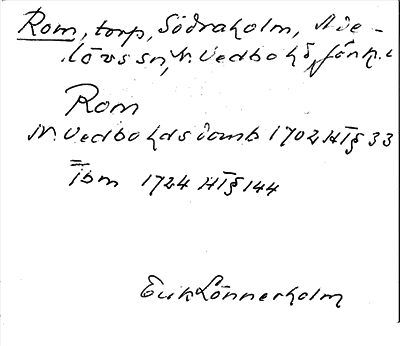 Rom, torp, Södraholm, Ave-
lövs sn, N. Vedbo hd, Jönk. l
Rom
N. Vedbo hds domb 1702 HI § 33
Ibm 1724 HI § 144
Erik Lönnerholm